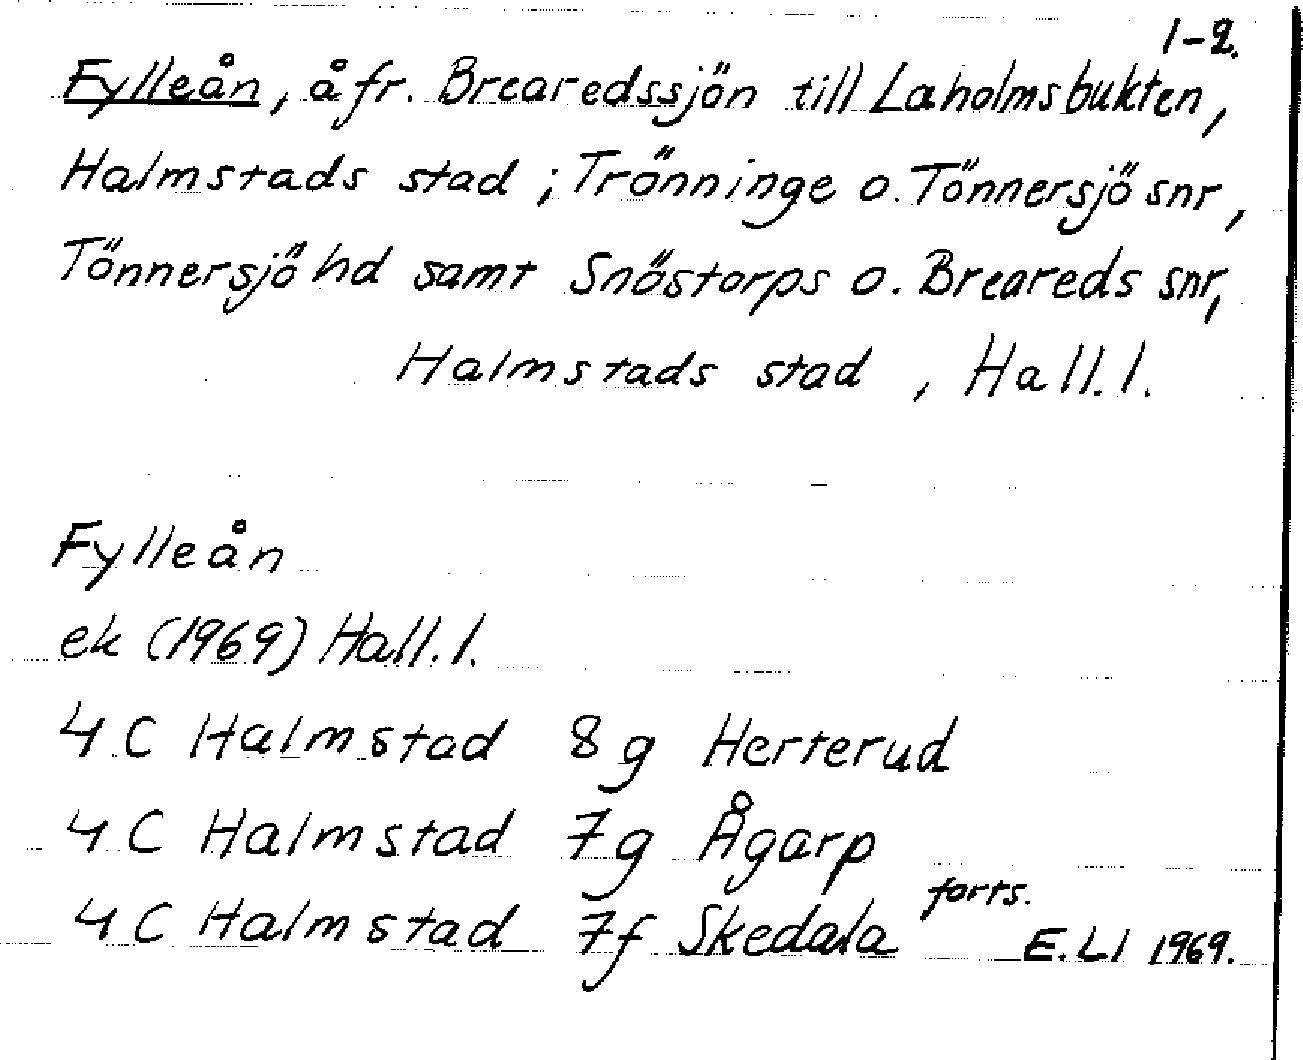 1-2.
Fylleån, å fr. Brearedssjön till Laholmsbukten,
Halmstads stad ; Trönninge o. Tönnersjö snr,
Tönnersjö hd samt Snöstorps o. Breareds snr,
Halmstads stad , Hall. l.
Fylleån
ek (1969) Hall. l.
4 C Halmstad 8g Herterud
4 C Halmstad 7g Ågarp
4 C Halmstad 7f Skedala forts.
E.Ll 1969.